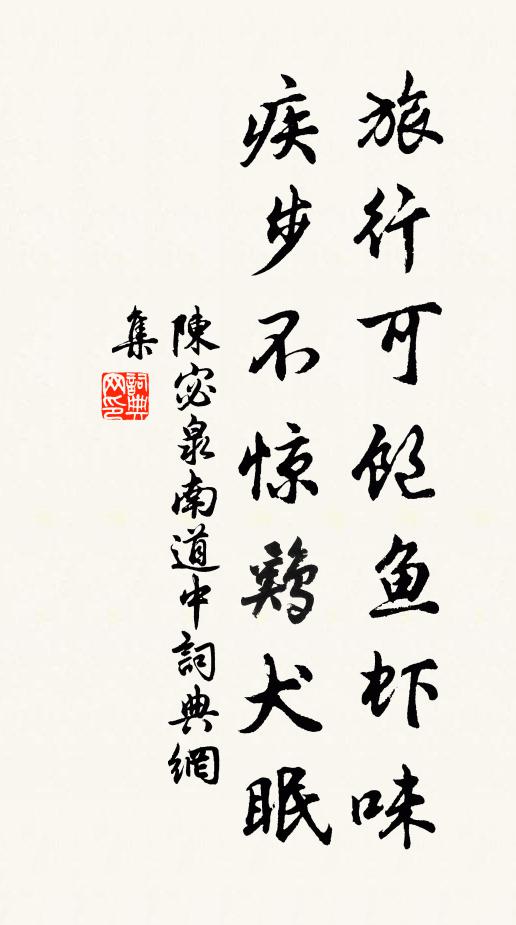 旅行可飽鱼虾味
疾步不惊鷄犬眠
陳宓泉南道中詞典網
集
詞典网印